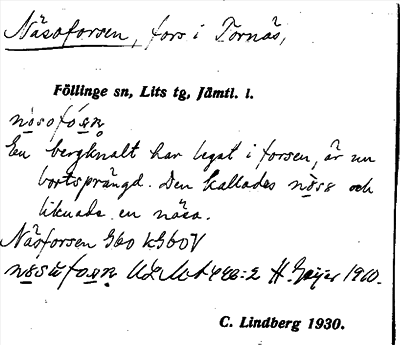 Näsoforsen, fors i Tornäs,
Föllinge sn, Lits tg, Jämtl. l.
En bergknalt har legat i forsen, är nu
bortsprängd. Den kallades och
liknade en näsa.
Näsforsen 360 k360V
H. Geijer 1960.
C. Lindberg 1930.